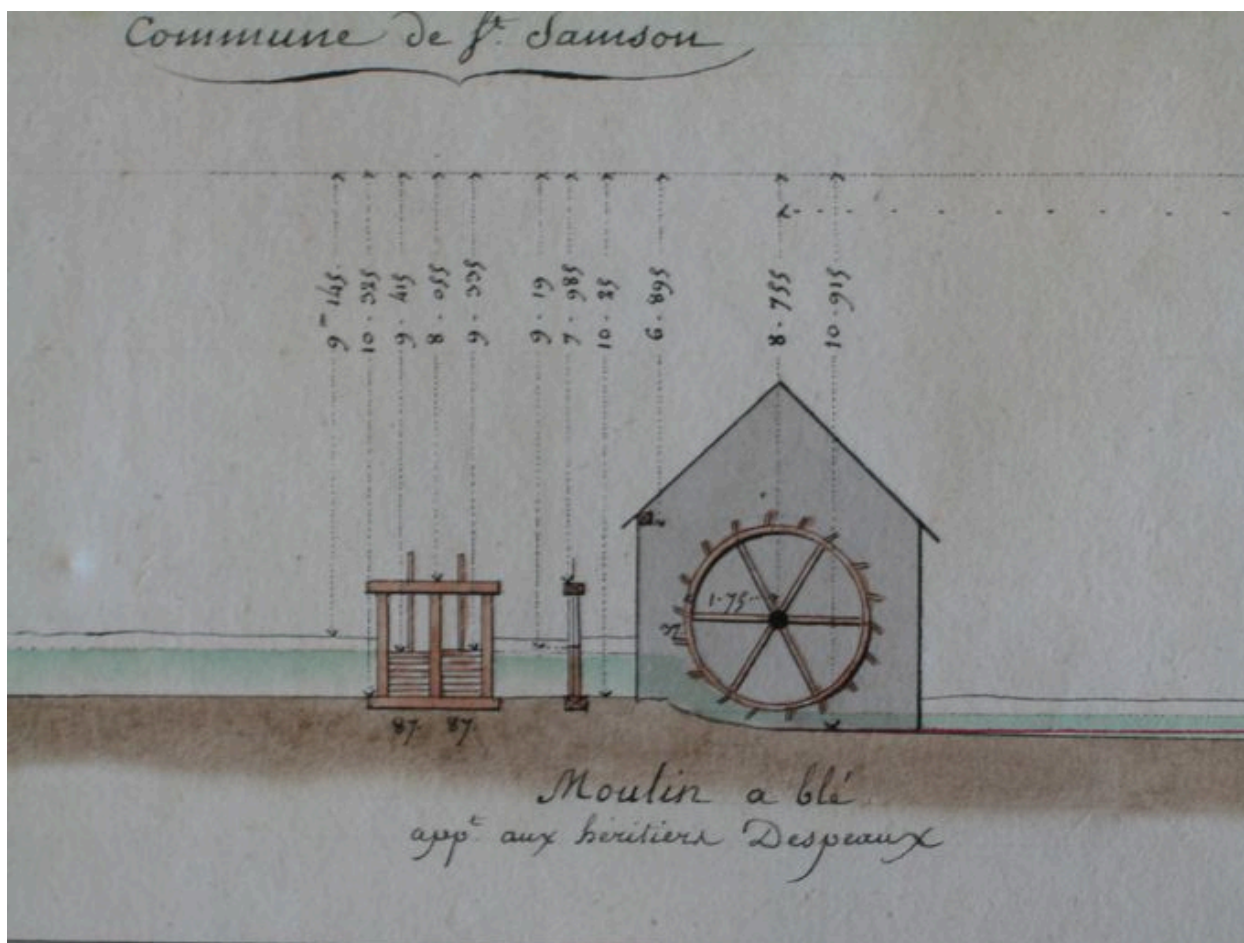 Commune de St. Samson
9m 145.
10 . 385
9 . 415
8 . 055
9 . 335
9 . 19
7 . 985
10 . 35
6 . 865
8 . 755
10 . 915
1.75
87. 87.
Moulin a blé
appt. aux héritiers Despeaux